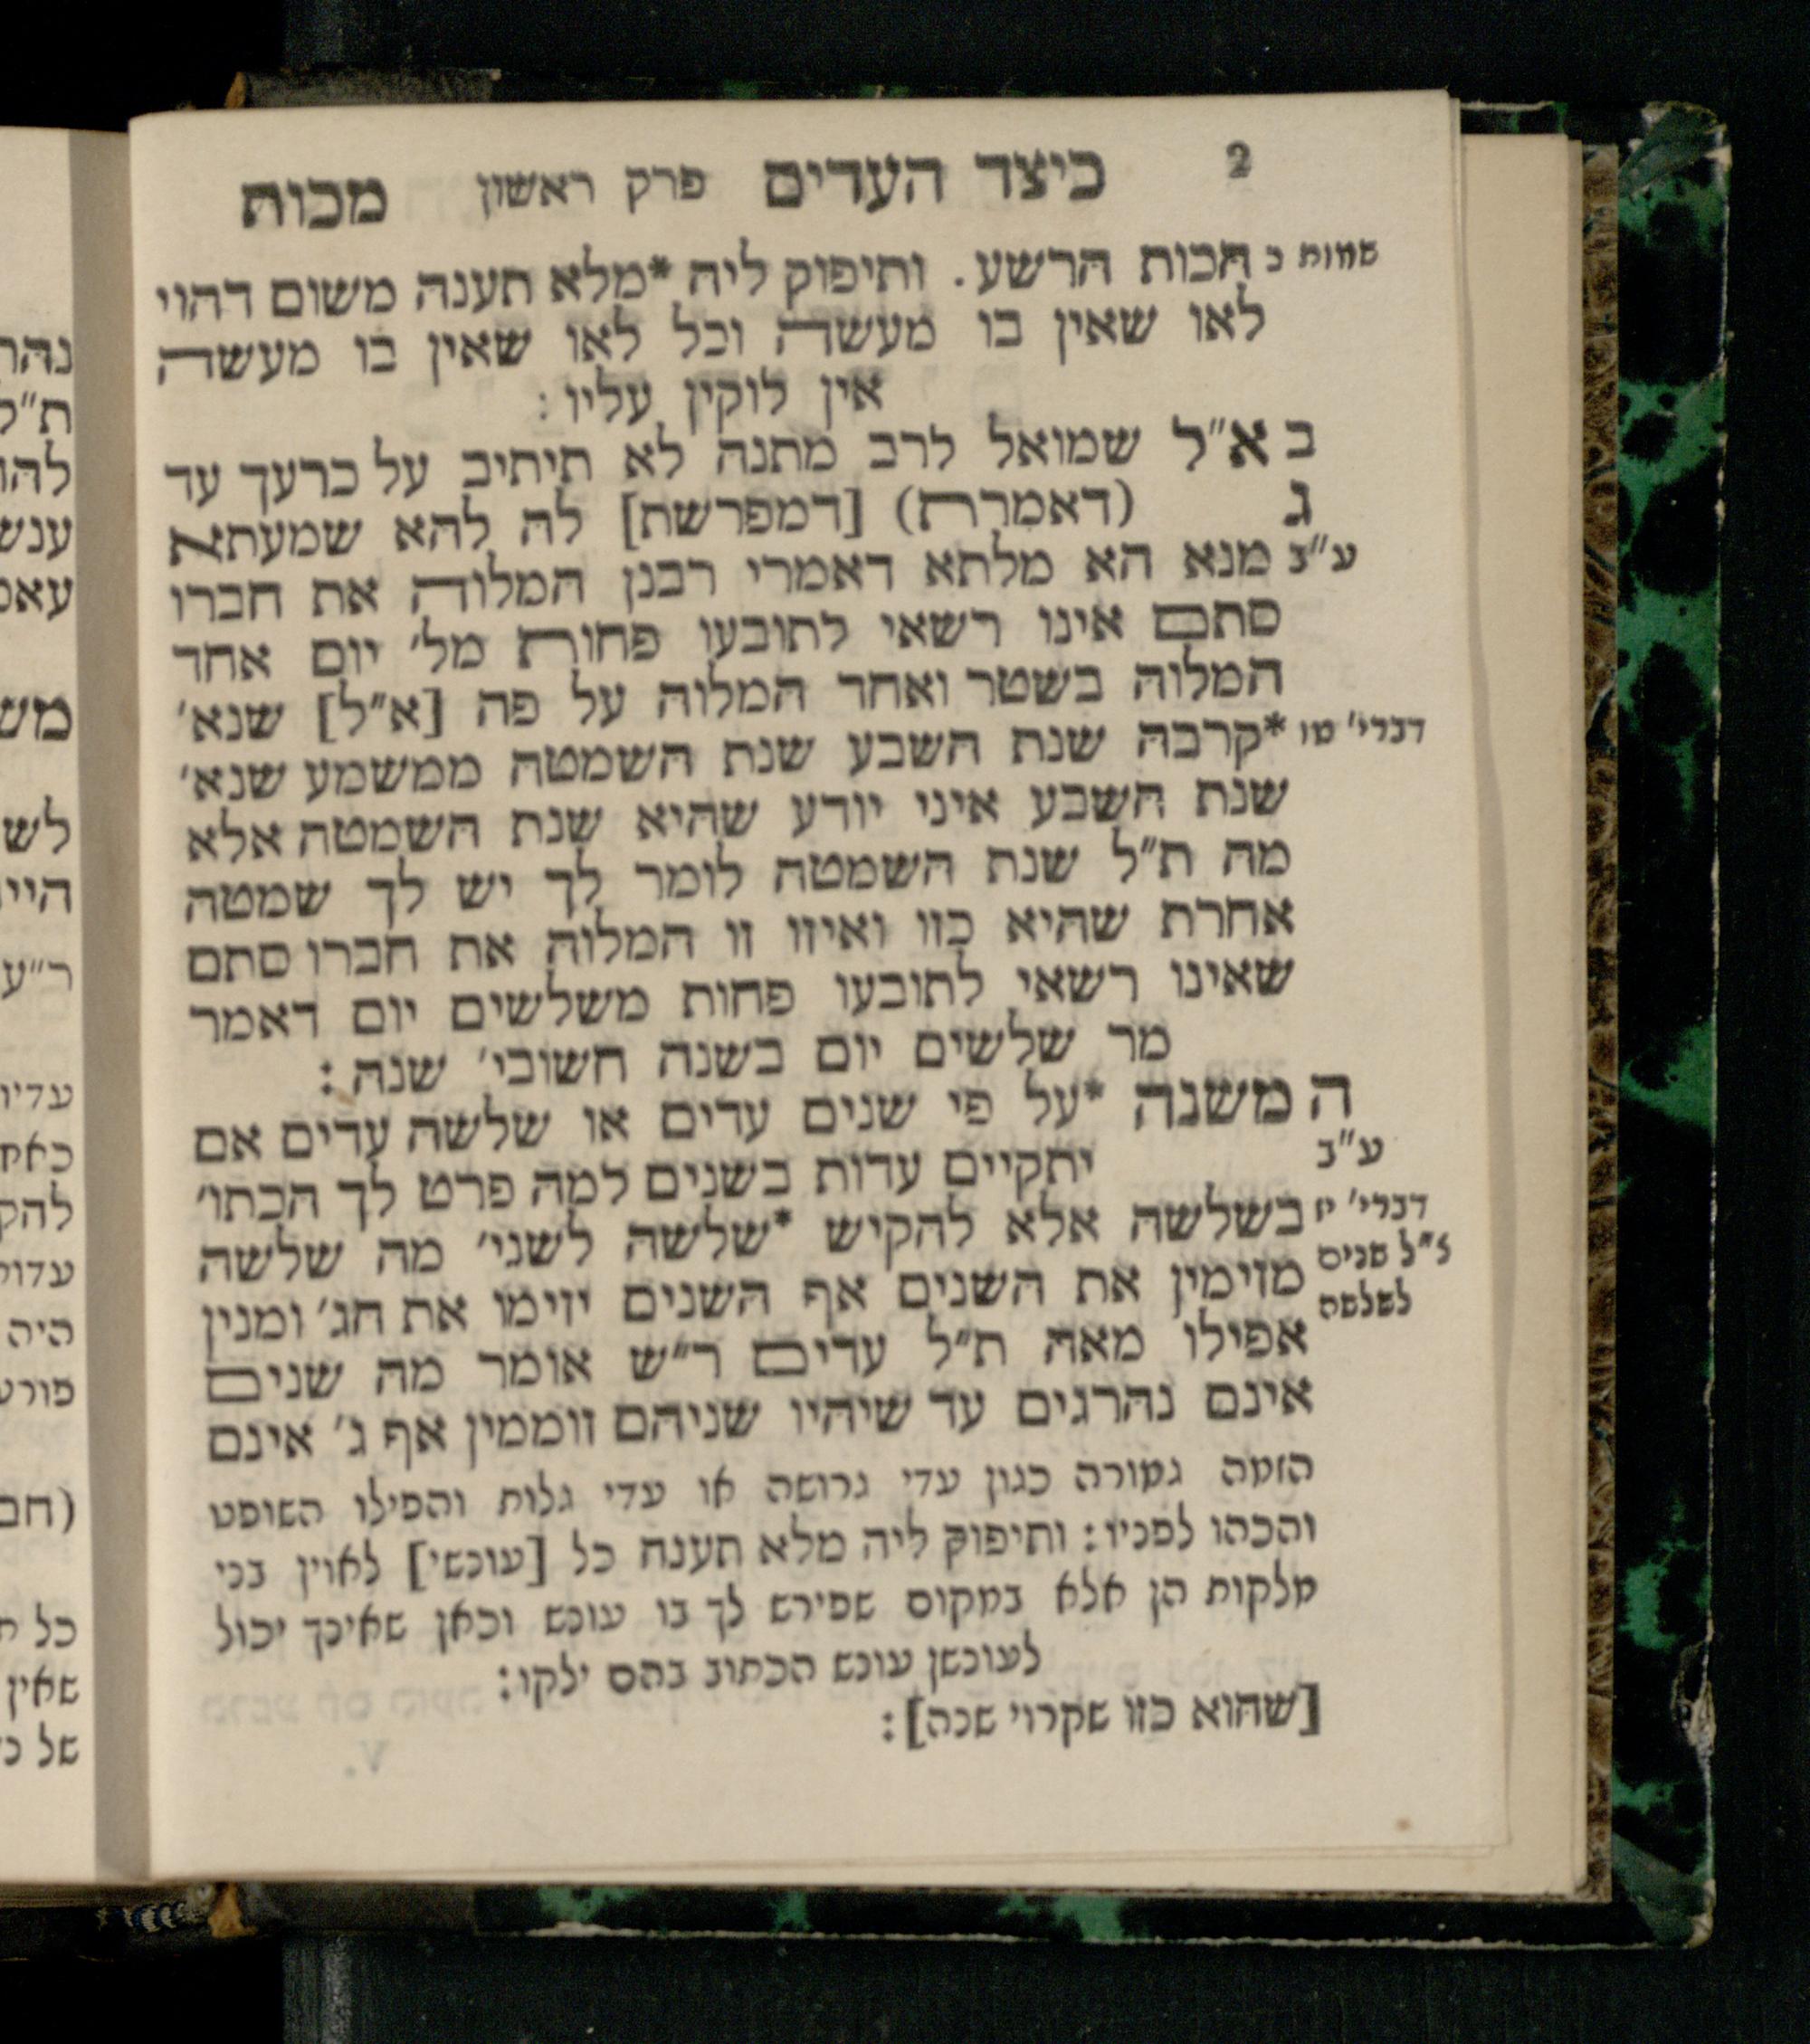 2 כיצד העדים פרק ראשון מכות
שמות כ הכות הרשע. ותיפוק ליה *מלא תענה משום דהוי
לאו שאין בו מעשה וכל לאו שאין בו מעשה
אין לוקין עליו:
ב א״ל שמואל לרב מתנה לא תיתיב על כרעך עד
ג (דאמרת) [דמפרשת] לה להא שמעתא
ע״ב מנא הא מלתא דאמרי רבנן המלוה את חברו
סתם אינו רשאי לתובעו פחות מל׳ יום אחד
המלוה בשטר ואחד המלוה על פה [א״ל] שנא׳
דברי׳ טו *קרבה שנת השבע שנת השמטה ממשמע שנא׳
שנת השבע איני יודע שהיא שנת השמטה אלא
מה ת״ל שנת השמטה לומר לך יש לך שמטה
אחרת שהיא כזו ואיזו זו המלוה את חברו סתם
שאינו רשאי לתובעו פחות משלשים יום דאמר
מר שלשים יום בשנה חשובי׳ שנה:
ה משנה *על פי שנים עדים או שלשה עדים אם
ע״ב יתקיים עדות בשנים למה פרט לך הכתו׳
דברי׳ יז בשלשה אלא להקיש *שלשה לשני׳ מה שלשה
ל״ל שנים מזימין את השנים אף השנים יזימו את הג׳ ומנין
לשלשה אפילו מאה ת״ל עדים ר״ש אומר מה שנים
אינם נהרגים עד שיהיו שניהם זוממין אף ג׳ אינם
הזמה גמורה כגון עדי גרושה או עדי גלות והפילו השופט
והכהו לפניו: ותיפוק ליה מלא תענה כל [עונשי] לאוין בכי
מלקות הן אלא במקום שפירש לך בו עונש וכאן שאינך יכול
לעונשן עונש הכתוב בהם ילקו:
[שהוא כזו שקרוי שנה]:
נהר
ת״ל
להו
ענש
עאמ
מש
לש
היי
ר״ע
עדיו
כאח
להק
עדות
היה
פורע
(חב
כל ה
שאין
של כ